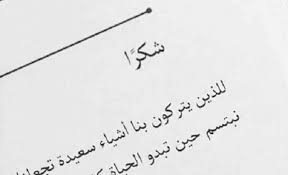 شكرًا
للذين يتركون بنا أشياء سعيدة تجعلنا
نبتسم حين تبدو الحياة